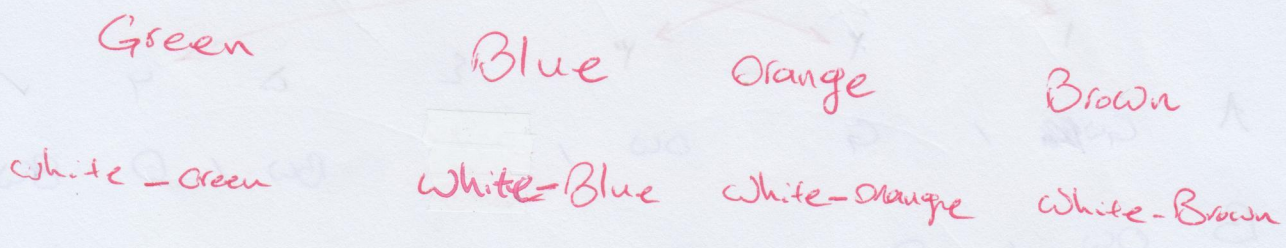 Green Blue Orange Brown
White-Green White-Blue White-Orange White-Brown